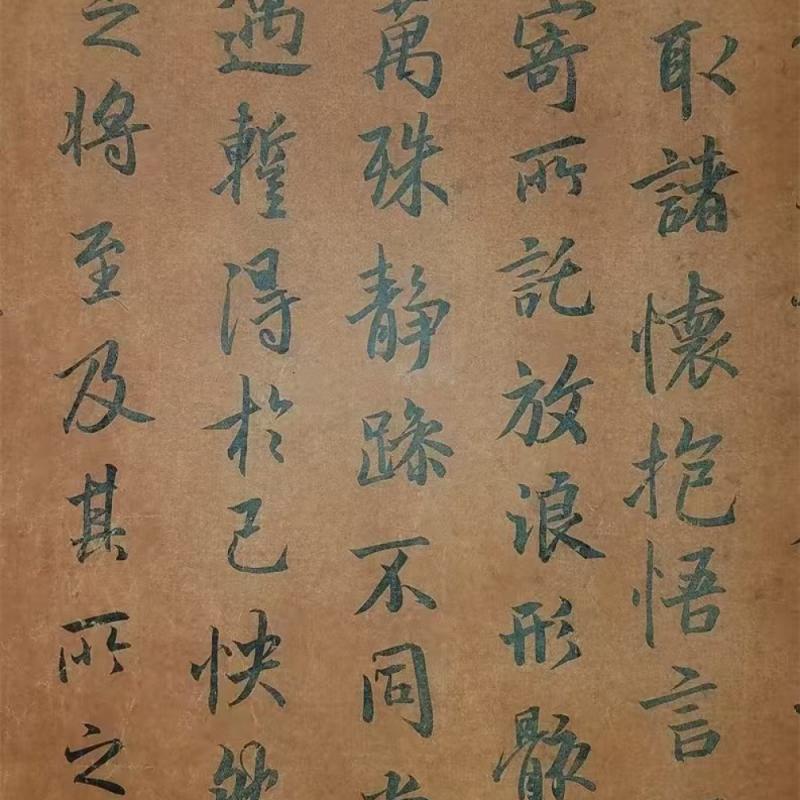 取諸懷抱悟言
寄所託放浪形骸
萬殊静躁不同當
遇蹔得於己快然
之将至及其所之